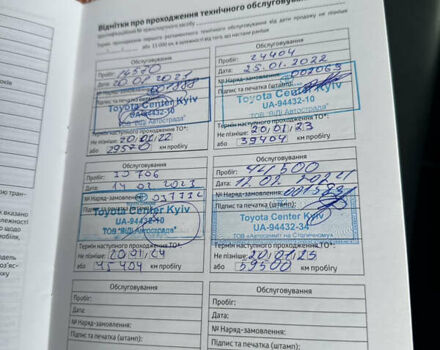 Відмітки про проходження технічного обслуговування
Обслуговування
Пробіг: 14570
Дата: 20.01.2021
№ Наряд-замовлення:
Підпис та печатка (штамп):
Toyota Center Kyiv
UA-94432-10
ТОВ "ВІДІ Автострада"
Термін наступного проходження ТО*:
Не пізніше: 20.01.22
або 29570 км пробігу
Обслуговування
Пробіг: 24404
Дата: 25.01.2022
№ Наряд-замовлення: 002063
Підпис та печатка (штамп):
Toyota Center Kyiv
UA-94432-10
ТОВ "ВІДІ Автострада"
Термін наступного проходження ТО*:
Не пізніше: 20.01.23
або 39404 км пробігу
Обслуговування
Пробіг: 30706
Дата: 14.02.2023
№ Наряд-замовлення:
Підпис та печатка (штамп):
Toyota Center Kyiv
UA-94432-10
ТОВ "ВІДІ Автострада"
Термін наступного проходження ТО*:
Не пізніше: 20.01.24
або 45404 км пробігу
Обслуговування
Пробіг: 44500
Дата: 12.02.2024
№ Наряд-замовлення:
Підпис та печатка (штамп):
Toyota Center Kyiv
UA-94432-34
ТОВ «Автосаміт на Столичному»
Термін наступного проходження ТО*:
Не пізніше: 20.01.25
або 59500 км пробігу
Обслуговування
Пробіг:
Дата:
№ Наряд-замовлення:
Підпис та печатка (штамп):
Обслуговування
Пробіг:
Дата:
№ Наряд-замовлення:
Підпис та печатка (штамп):